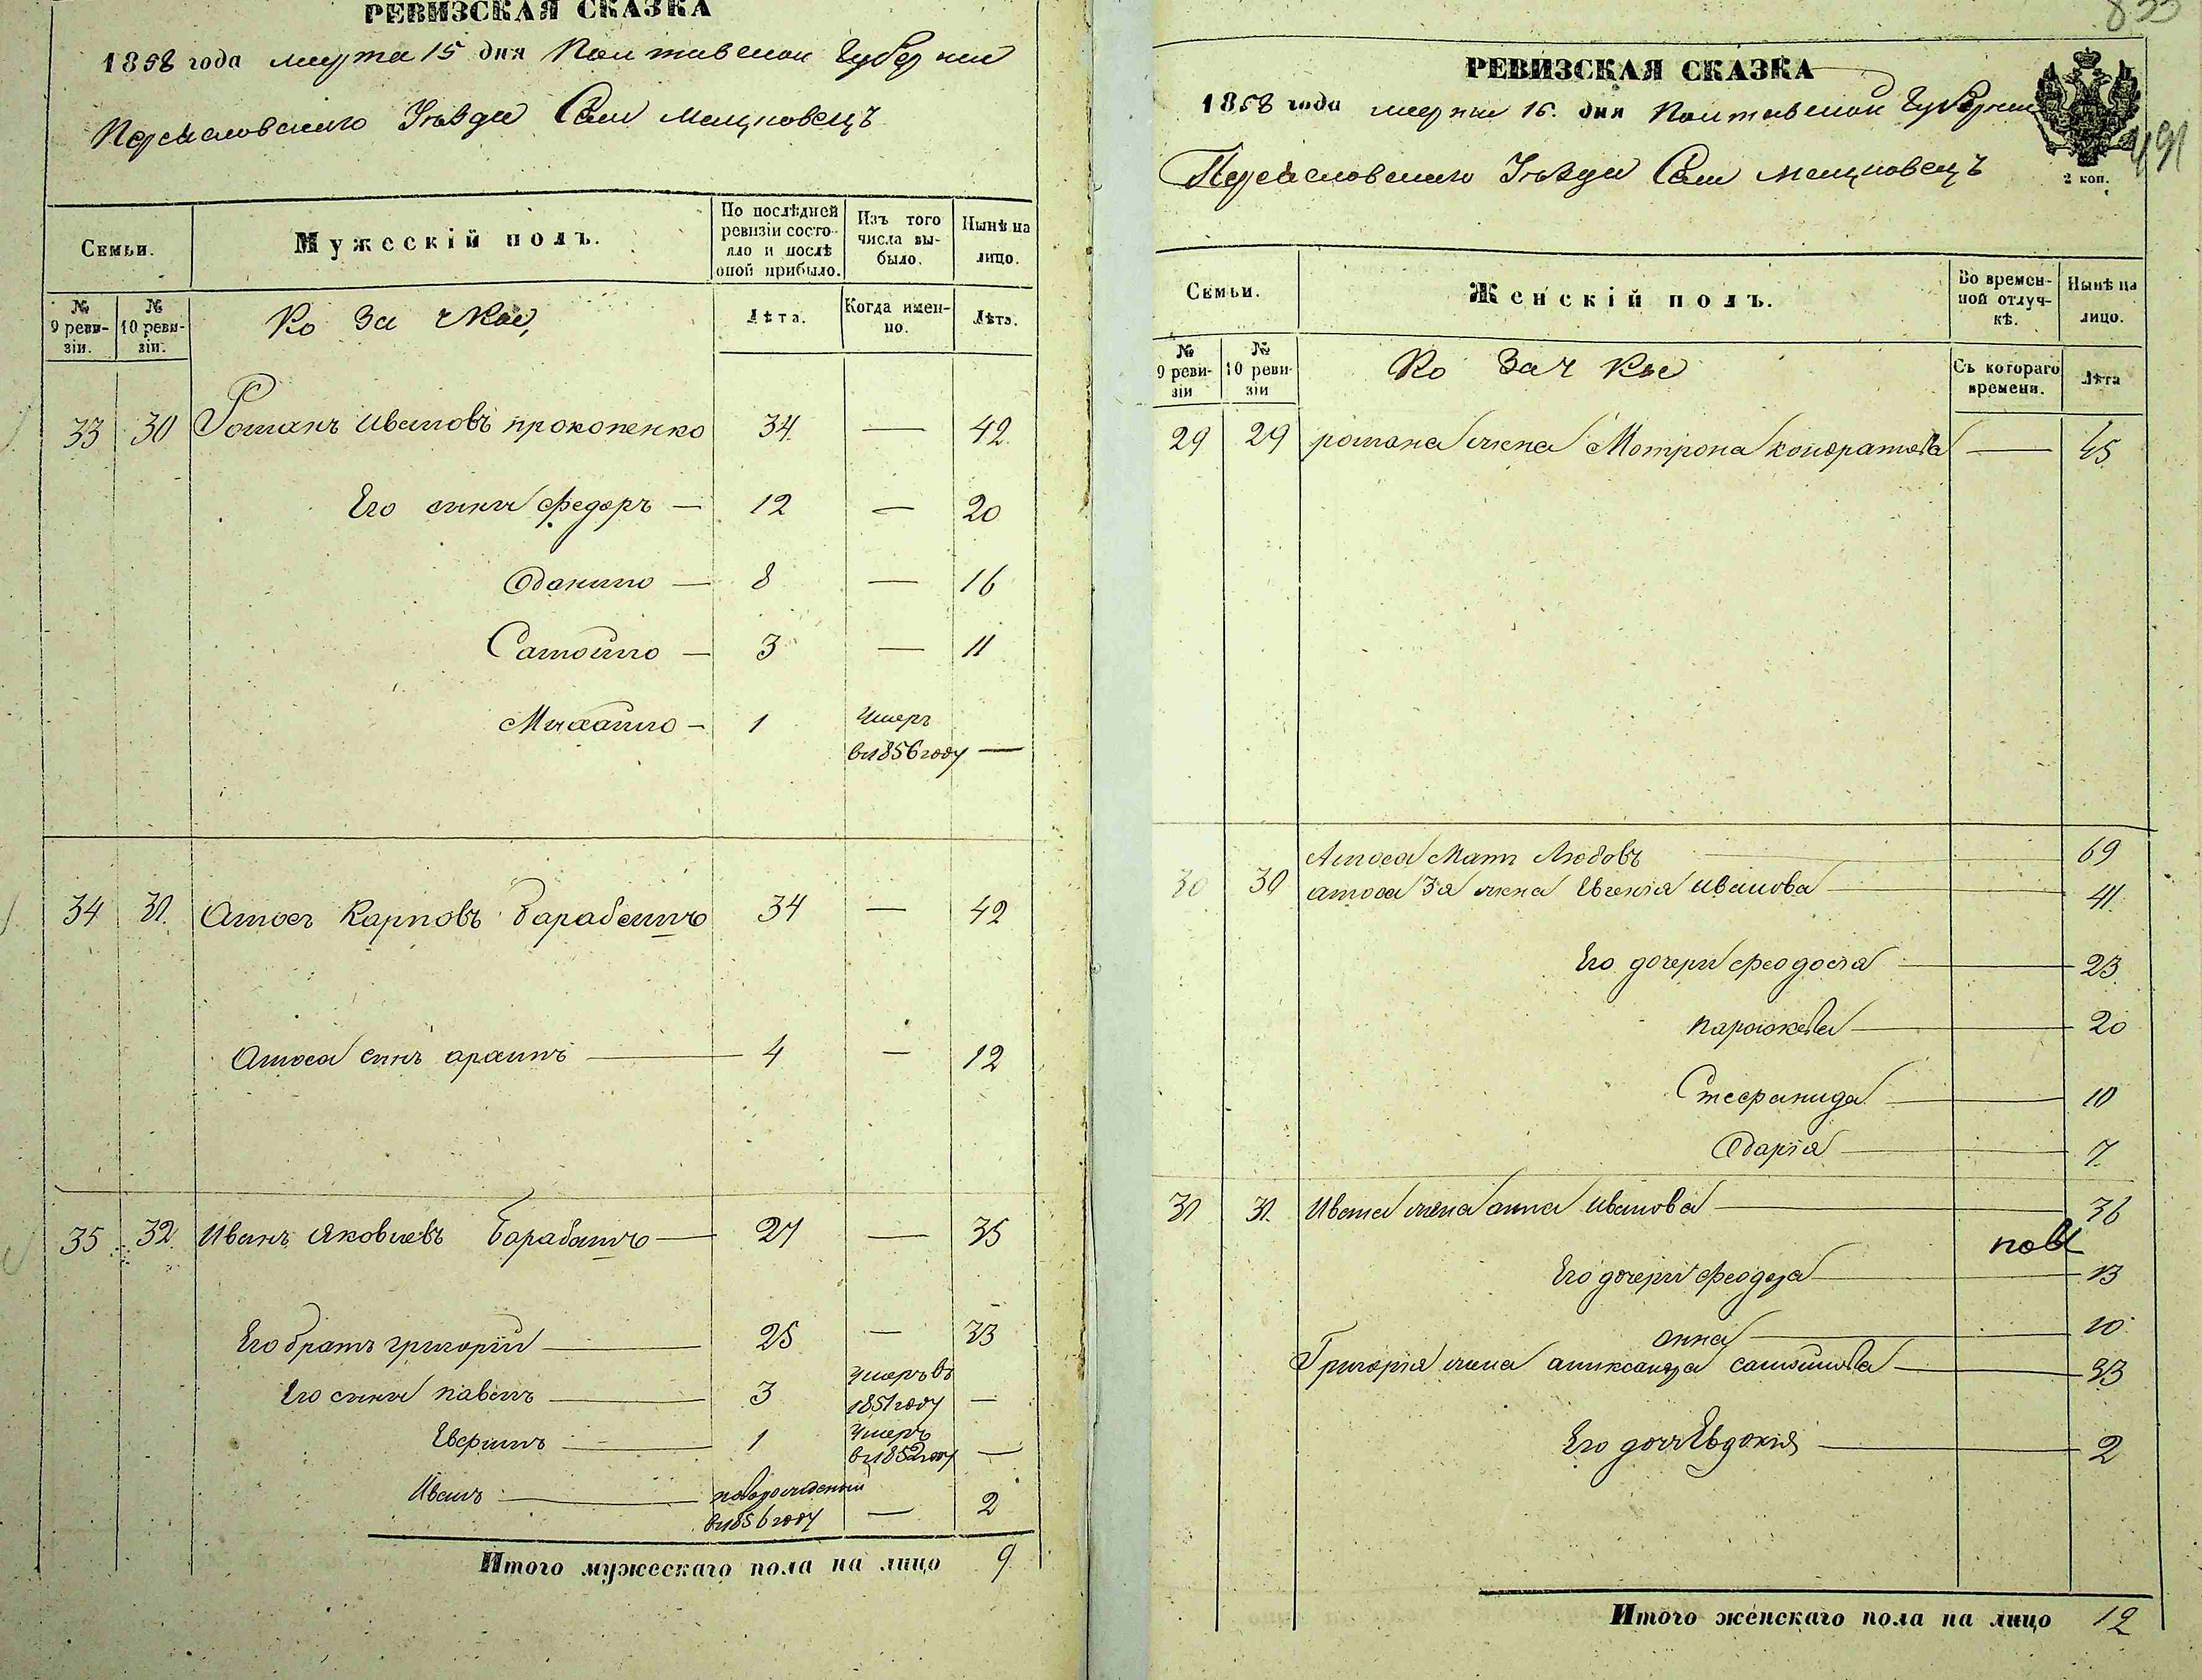 РЕВИЗСКАЯ СКАЗКА
1858 года марта 15 дня Полтавской Губернии
Переяловского Уезда Села Мацковецъ
Семьи.
Мужескій полъ.
По послѣдней ревизіи состо-
яло и послѣ
оной прибыло.
Изъ того
числа вы-
было.
Нынѣ на
лицо.
№
9 реви-
зіи.
№
10 реви-
зіи.
Козачкы
Лѣта.
Когда имен-
но.
Лѣта.
33 30 Романъ Ивановъ прокопенко 34 — 42
Его сины Федоръ — 12 — 20
Данило — 8 — 16
Самойло — 3 — 11
Михайло — 1 умеръ
въ 1856 году —
34 31. Амосъ Карповъ Барабашъ 34 — 42
Амоса синъ архипъ 4 — 12
35 32 Иванъ Яковлевъ Барабашъ — 27 — 35
Его братъ григорій 25 — 33
Его сины павелъ 3 умеръ въ
1851 году —
Евфимъ 1 умеръ
въ 1852 году —
Иванъ новорожденный
въ 1856 году — 2
Итого мужескаго пола на лицо 9
РЕВИЗСКАЯ СКАЗКА
1858 года марта 15. дня Полтавской Губернии
Переяловского Уезда Села Мацковецъ
2 коп.
491
Семьи.
Женскій полъ.
Во времен-
ной отлуч-
кѣ.
Нынѣ на
лицо.
№
9 реви-
зіи
№
10 реви-
зіи
Козачкы
Съ котораго
времени.
Лѣта
29 29 романа жена Мотрона кондратова — 45
Амоса Мать Любовъ 69
30 30 амоса 3я жена Евгенія иванова 41
Его дочери феодосія 23
параскева 20
Стефанида 10
Дарія 7
31 31. Ивана жена анна иванова 36
нов
Его дочери феодора 13
анна 10
Григорія жена александра самойлова 33
Его дочь Евдокія 2
Итого женскаго пола на лицо 12